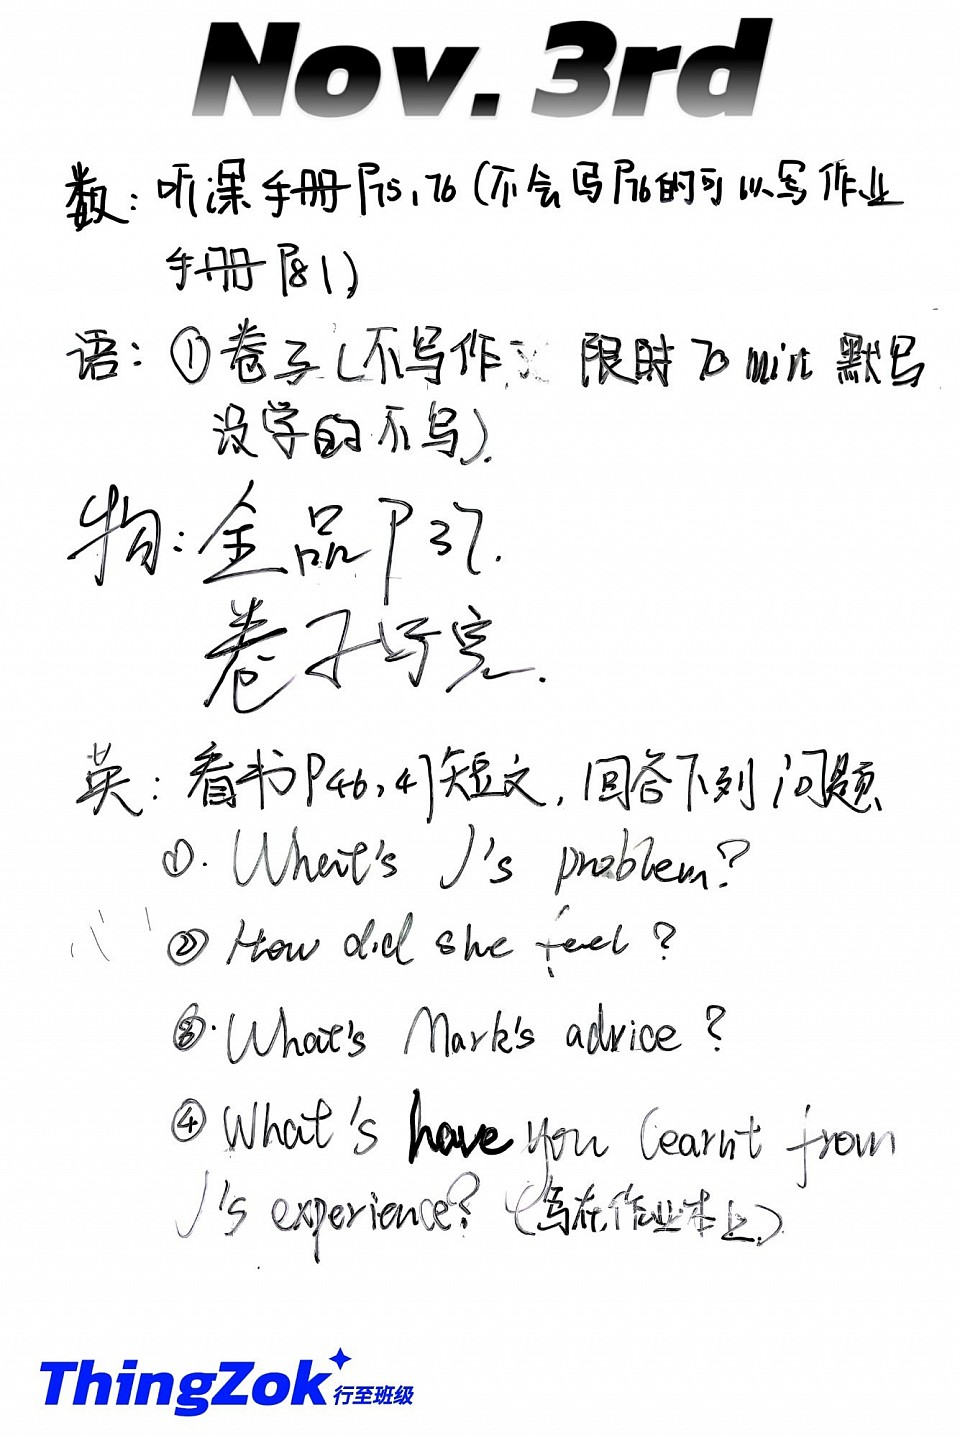 Nov. 3rd
数: 听课手册P75,76(不会写P76的可以写作业
手册P81)
语: ①卷子(不写作 限时70min 默写
没学的不写).
物: 全品P37.
卷子写完.
英: 看书P46,47短文,回答下列问题
①. What's J's problem?
② How did she feel?
③. What's Mark's advice?
④ What's have you learnt from
J's experience? (写在作业本上)
ThingZok 行至班级